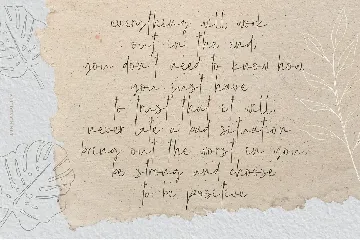 everything will work
out in the end.
you don't need to know how.
you just have
to trust that it will.
never let a bad situation
bring out the worst in you.
be strong and choose
to be positive